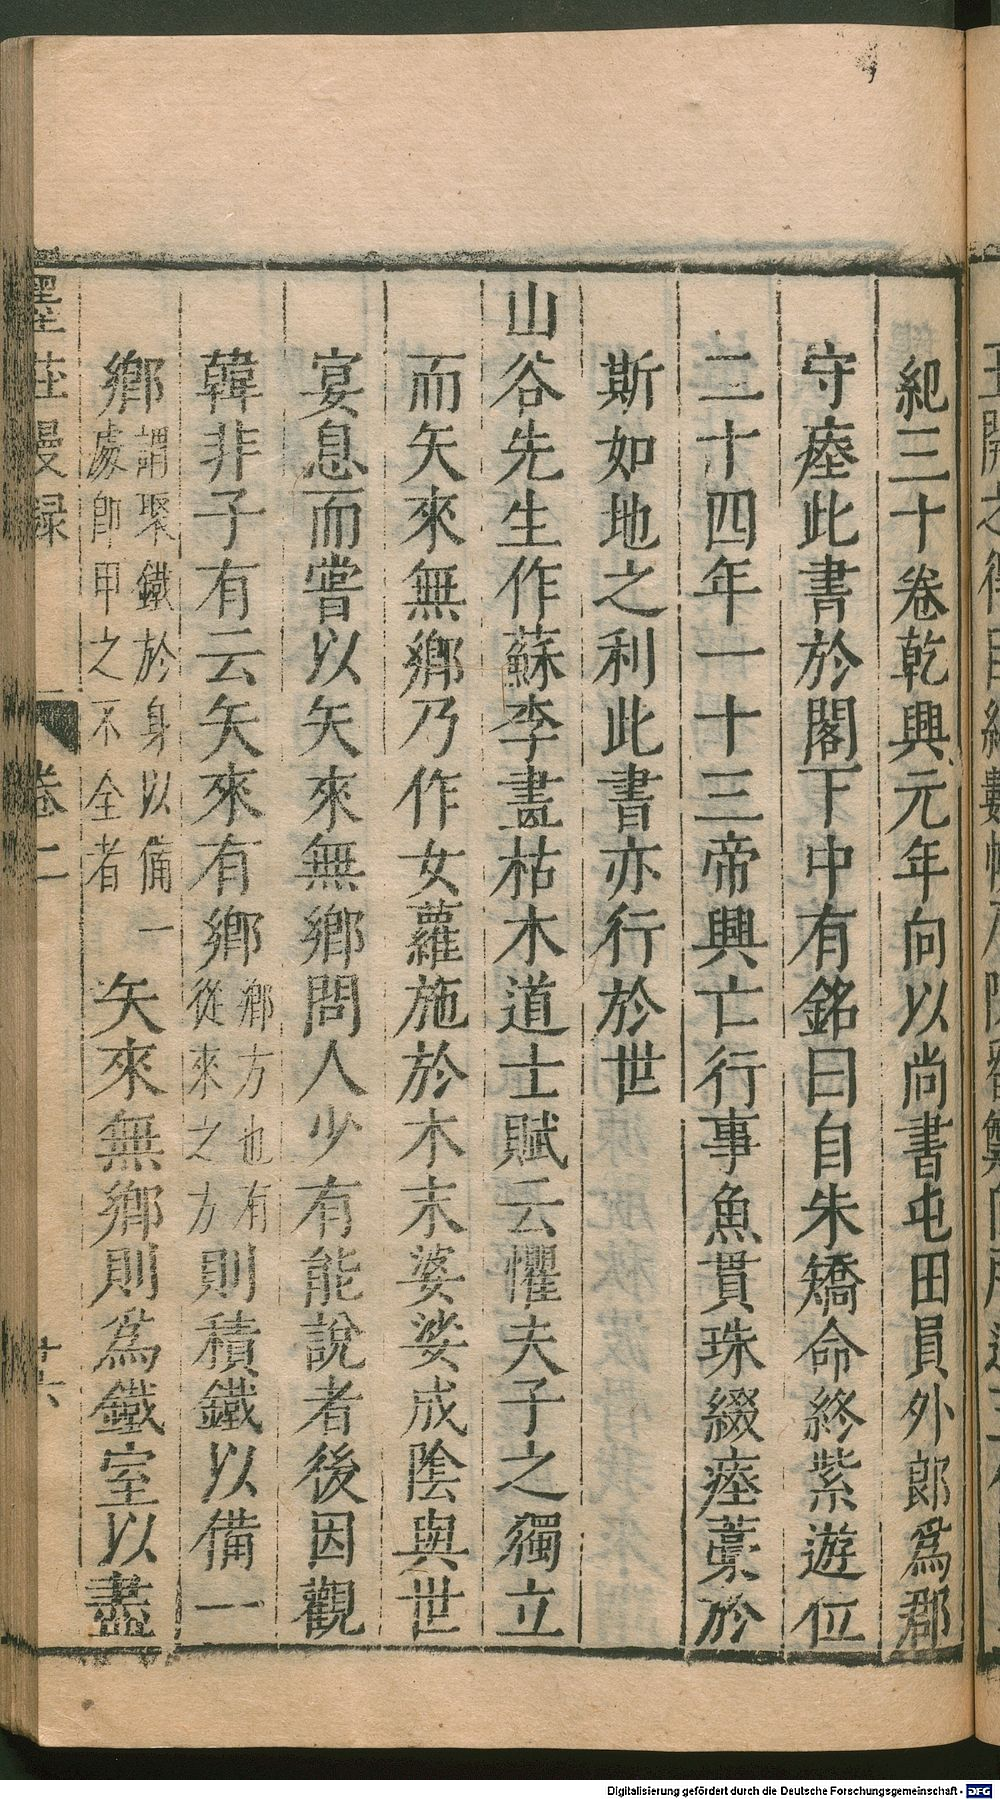 紀三十卷乾興元年向以尚書屯田員外郎爲郡
守瘞此書於閣下中有銘曰自朱矯命終紫遊位
二十四年一十三帝興亡行事魚貫珠綴瘞藁於
斯如地之利此書亦行於世
山谷先生作蘇李畫枯木道士賦云懼夫子之獨立
而矢來無鄉乃作女蘿施於木末婆娑成陰與世
宴息而嘗以矢來無鄉問人少有能說者後因觀
韓非子有云矢來有鄉鄉方也有從來之方則積鐵以備一
鄉謂聚鐵於身以備一處即甲之不全者矢來無鄉則爲鐵室以盡
墨莊漫録 卷二 廿六
Digitalisierung gefördert durch die Deutsche Forschungsgemeinschaft - DFG